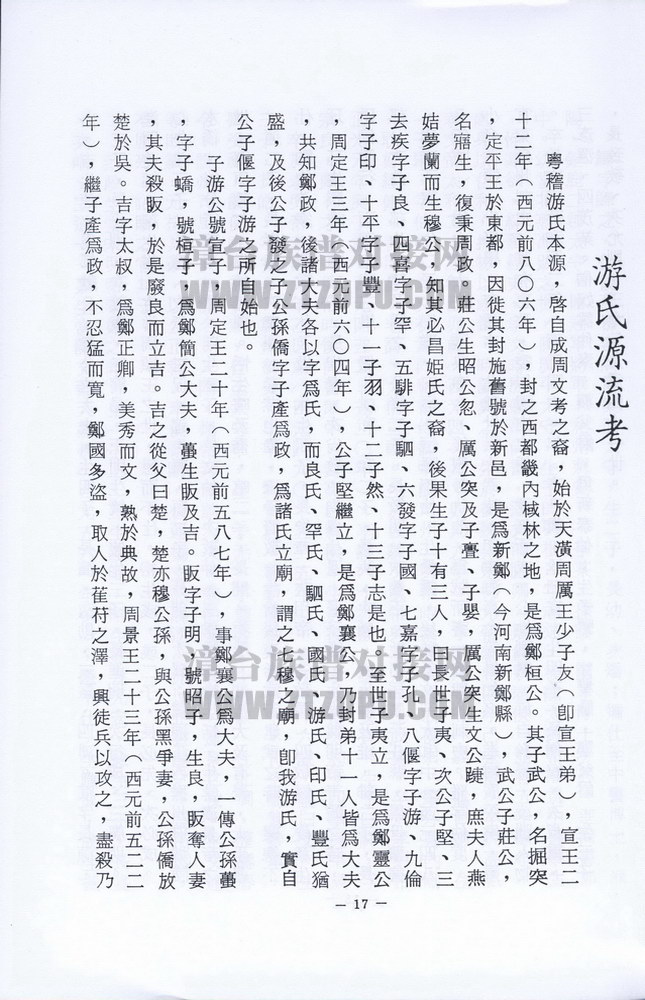 游氏源流考
粵稽游氏本源，啓自成周文考之裔，始於天潢周厲王少子友（卽宣王弟），宣王二
十二年（西元前八０六年），封之西都畿內棫林之地，是爲鄭桓公。其子武公，名掘突
，定平王於東都，因徙其封施舊號於新邑，是爲新鄭（今河南新鄭縣），武公子莊公，
名寤生，復秉周政，莊公生昭公忽、厲公突及子亹、子嬰，厲公突生文公踕，庶夫人燕
姞夢蘭而生穆公，知其必昌姬氏之裔，後果生子十有三人，曰長世子夷、次公子堅、三
去疾字子良、四喜字子罕、五騑字子駟、六發字子國、七嘉字子孔、八偃字子游、九倫
字子印、十平字子豐、十一子羽、十二子然、十三子志是也。至世子夷立，是爲鄭靈公
，周定王三年（西元前六０四年），公子堅繼立，是爲鄭襄公，乃封弟十一人皆爲大夫
，共知鄭政，後諸大夫各以字爲氏，而良氏、罕氏、駟氏、國氏、游氏、印氏、豐氏猶
盛，及後公子發之子公孫僑字子產爲政，爲諸氏立廟，謂之七穆之廟，卽我游氏，實自
公子偃字子游之所自始也。
子游公號宣子，周定王二十年（西元前五八七年），事鄭襄公爲大夫，一傳公孫蠆
，字子蟜，號桓子，爲鄭簡公大夫，蠆生販及吉。販字子明，號昭子，生良，販奪人妻
，其夫殺販，於是廢良而立吉。吉之從父曰楚，楚亦穆公孫，與公孫黑爭妻，公孫僑放
楚於吳。吉字太叔，爲鄭正卿，美秀而文，熟於典故，周景王二十三年（西元前五二二
年），繼子產爲政，不忍猛而寬，鄭國多盜，取人於萑苻之澤，興徒兵以攻之，盡殺乃
— 17 —
漳台族谱对接网
WWW.ZTZUPU.COM
漳台族谱对接网
WWW.ZTZUPU.COM